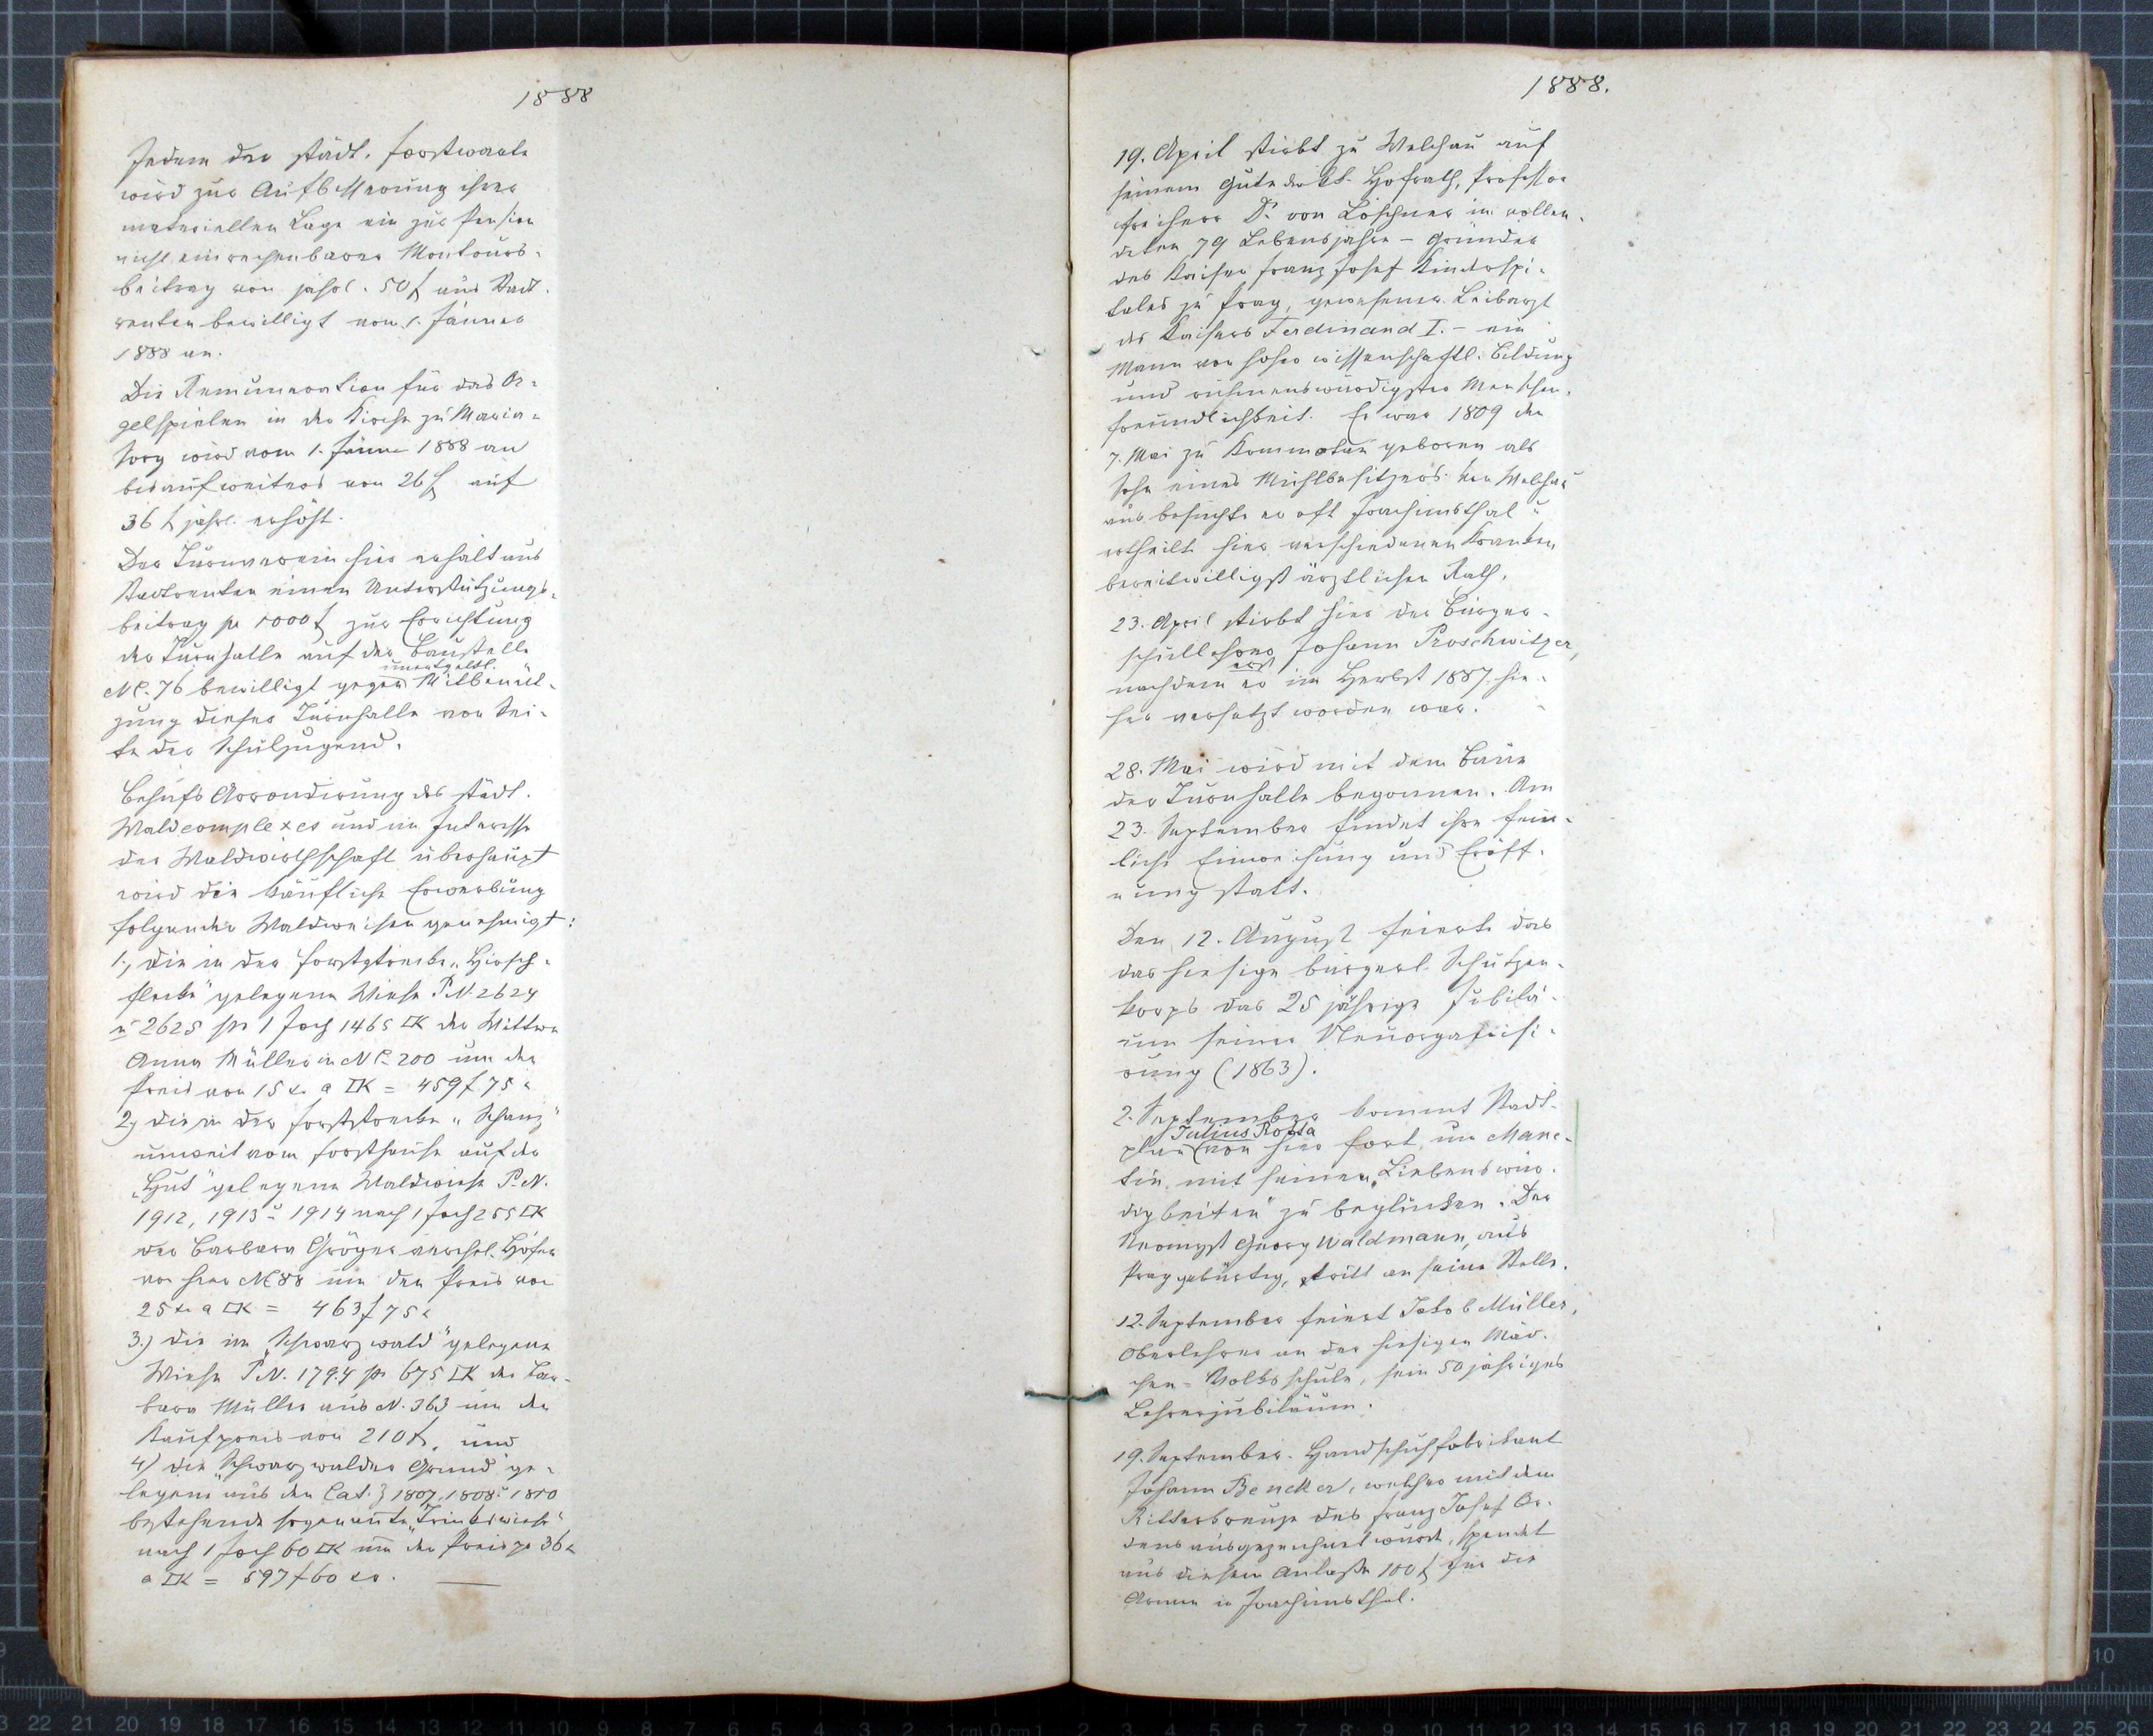 1888
Jedem der städt. Forstwarte
wird zur Aufbesserung ihrer
materiellen Lage ein zur Pension
nicht einrechenbarer Montours-
beitrag von jährl. 50 f aus Stadt-
renten bewilligt vom 1. Jänner
1888 an.
Die Remuneration für das Or-
gelspielen in der Kirche zu Maria-
sorg wird vom 1. Jänner 1888 an
bis auf weiteres von 26 f auf
36 f jährl. erhöht.
Der Turnverein hier erhält aus
Stadtrenten einen Unterstützungs-
beitrag pr 1000 f zur Errichtung
der Turnhalle auf der Baustelle
unentgeltl.
NC. 76 bewilligt gegen Mitbenüt-
zung dieser Turnhalle von Sei-
te der Schuljugend.
Behufs Arrondirung des städt.
Waldcomplexes und im Interesse
der Waldwirthschaft überhaupt
wird die käufliche Erwerbung
folgender Waldwiesen genehmigt:
1., die in der Forststrecke "Hirsch-
flecke" gelegene Wiese P.N. 2624
u 2625 pr 1 Joch 1465 □K der Wittwe
Anna Müller in NC. 200 um den
Preis von 15 x. a □K = 459 f 75 x
2., die in der Forststrecke "Schanz"
unweit vom Forsthause auf der
"Hut" gelegene Waldwiese P.N.
1912, 1913 u 1914 nach 1 Joch 255 □K
der Barbara Gröger verehel. Höfer
von hier NC 88 um den Preis von
25 x. a □K = 463 f 75 x
3.) die im "Schwarzwald" gelegene
Wiese P.N. 1794 pr 675 □K der Bar-
bara Müller aus N. 363 um den
Kaufpreis von 210 f, und
4) die "Schwarzwalder Grund" ge-
legene aus den Cat. Z 1807, 1808 u 1810
bestehende sogenannte "Trinkswiese"
nach 1 Joch 60 □K um den Preis pr 36 x
a □K = 597 f 60 xr.
1888.
19. April stirbt zu Welchau auf
seinem Gute der kk. Hofrath, Professor
Freiherr Dr. von Löschner im vollen-
deten 79 Lebensjahre – Gründer
des Kaiser Franz Josef Kinderspi-
tales zu Prag, gewesener Leibarzt
des Kaisers Ferdinand I. – ein
Mann von hoher wissenschaftl. Bildung
und rühmenswürdigster Menschen-
freundlichkeit. Er war 1809 den
7. Mai zu Kommotau geboren als
Sohn eines Mühlbesitzers. Von Welchau
aus besuchte er oft Joachimsthal u
ertheilte hier verschiedenen Kranken
bereitwilligst ärztlichen Rath.
23. April stirbt hier der Bürger-
schullehrer Johann Proschwitzer,
erst
nachdem er im Herbst 1887 hie-
her versetzt worden war.
28. Mai wird mit dem Baue
der Turnhalle begonnen. Am
23. September findet ihre feier-
liche Einweihung und Eröff-
nung statt.
Den 12. August feierte das
das hiesige bürgerl. Schützen-
korps das 25 jährige Jubilä-
um seiner Neuorganisi-
rung (1863).
2. September kommt Kadt-
Julius Rotta
plan von hier fort, um Mane-
tin mit seinen "Liebenswür-
digkeiten" zu beglücken. Der
Georg Waldmann, aus
Prag gebürtig, tritt an seine Stelle.
12. September feiert Jakob Müller,
Oberlehrer an der hiesigen Mäd-
chen-Volksschule, sein 50 jähriges
Lehrerjubiläum.
19. September. Handschuhfabrikant
Johann Bencker, welcher mit dem
Ritterkreuze des Franz Josef Or-
dens ausgezeichnet wurde, spendet
aus diesem Anlaße 100 f für die
Armen in Joachimsthal.